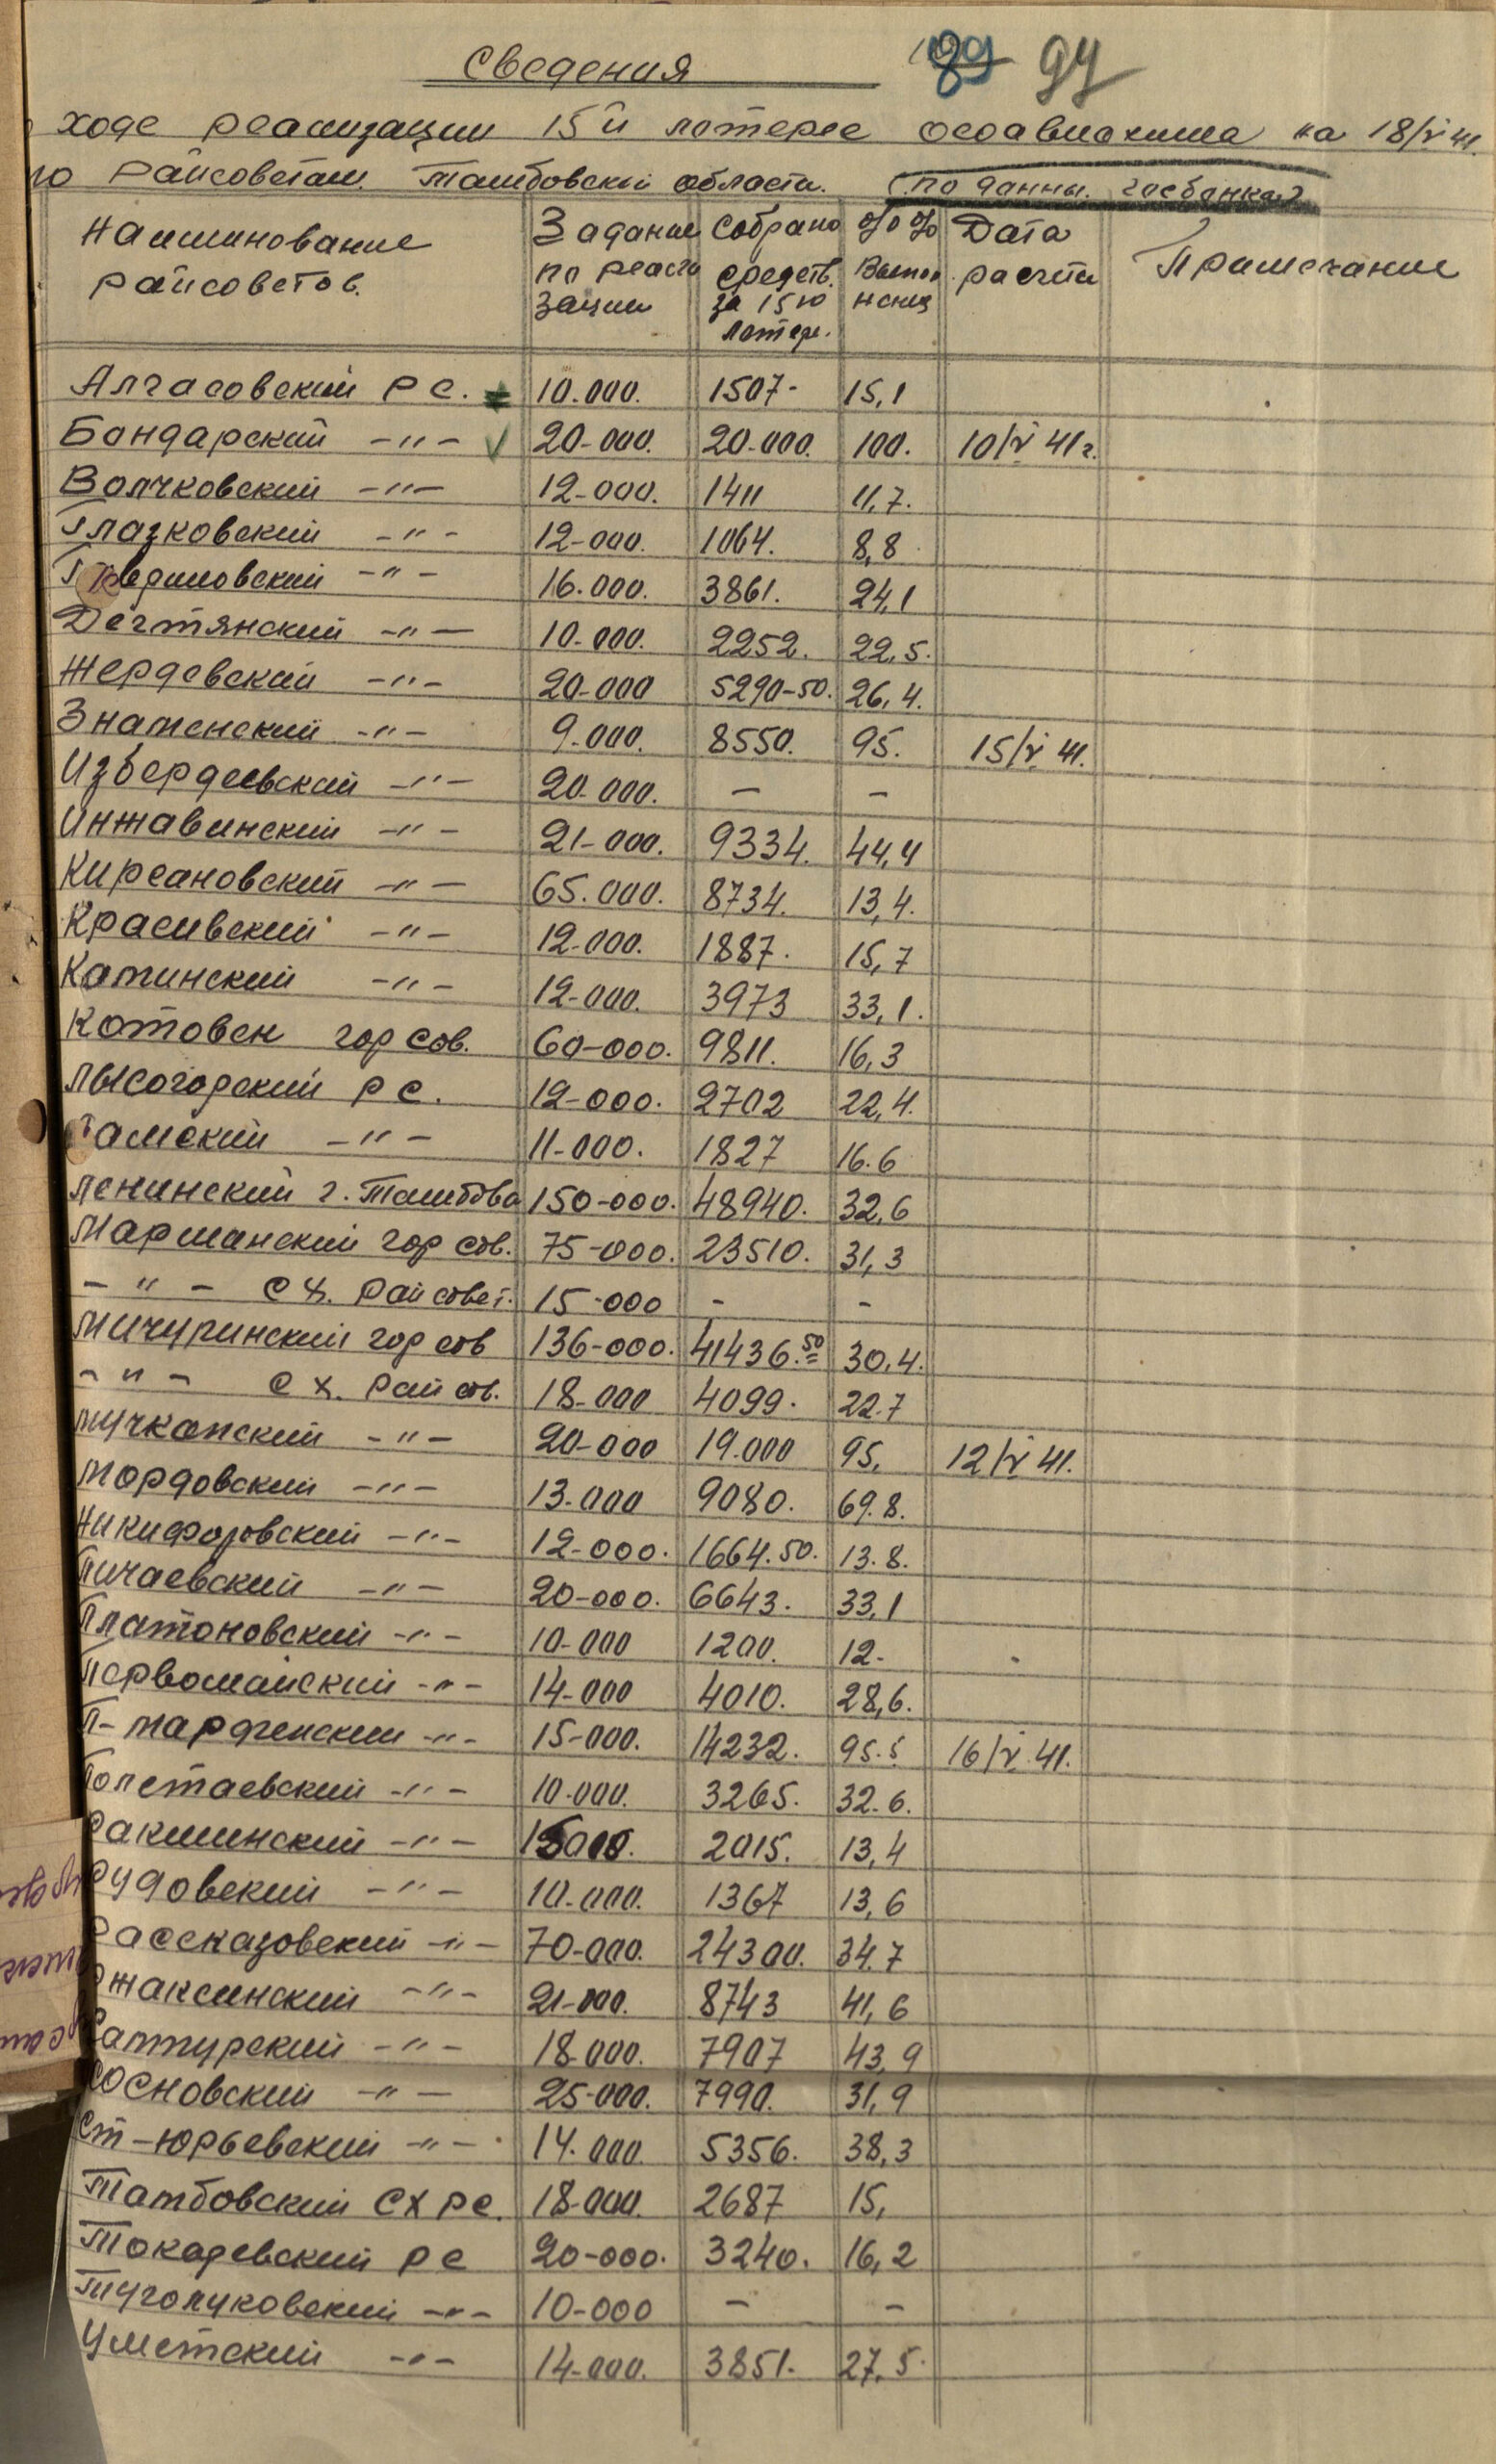 Сведения 89 94
ходе реализации 15й лотереи осоавиахима на 18/V 41.
по Райсоветам Тамбовской области. (по данны. госбанка)
Наименование райсоветов. Задание по реали зации Собрано средств. за 15ю лотере. % % Выпол нения Дата расчета Примечание
Алгасовский РС. 10.000. 1507- 15,1
Бондарский -"- √ 20-000. 20.000. 100. 10/V 41г.
Волчковский -"- 12-000. 1411 11,7.
Глазковский -"- 12-000. 1064. 8,8
Гавриловский -"- 16.000. 3861. 24,1
Дегтянский -"- 10.000. 2252. 22,5.
Жердевский -"- 20-000 5290-50. 26,4.
Знаменский -"- 9.000. 8550. 95. 15/V 41.
Избердеевский -"- 20.000. - -
Инжавинский -"- 21-000. 9334. 44,4
Кирсановский -"- 65.000. 8734. 13,4.
Красивский -"- 12.000. 1887. 15,7
Каминский -"- 12-000. 3973 33,1.
Котовск гор сов. 60-000. 9811. 16,3
Лысогорский РС. 12-000. 2702 22,4.
Ламский -"- 11-000. 1827 16.6
Ленинский г. Тамбова 150-000. 48940. 32,6
Моршанский гор сов. 75-000. 23510. 31,3
-"- СХ. Райсовет. 15-000 - -
Мичуринский гор сов 136-000. 41436.50 30,4.
-"- СХ. Рай сов. 18-000 4099. 22.7
Мучкапский -"- 20-000 19.000 95, 12/V 41.
Мордовский -"- 13-000 9080. 69.8.
Никифоровский -"- 12-000. 1664.50. 13.8.
Пичаевский -"- 20-000. 6643. 33,1
Платоновский -"- 10-000 1200. 12-
Первомайский -"- 14-000 4010. 28,6.
П-Марфенский -"- 15-000. 14232. 95.5 16/V 41.
Полетаевский -"- 10.000. 3265. 32.6.
Ракшинский -"- 15000. 2015. 13,4
Рудовский -"- 10.000. 1367 13,6
Рассказовский -"- 70-000. 24300. 34.7
Ржаксинский -"- 21-000. 8743 41,6
Сампурский -"- 18.000. 7907 43,9
Сосновский -"- 25-000. 7990. 31,9
Ст-Юрьевский -"- 14.000. 5356. 38,3
Тамбовский СХ РС. 18-000. 2687 15,
Токаревский РС 20-000. 3240. 16,2
Туголуковский -"- 10-000 - -
Уметский -"- 14-000. 3851. 27,5.